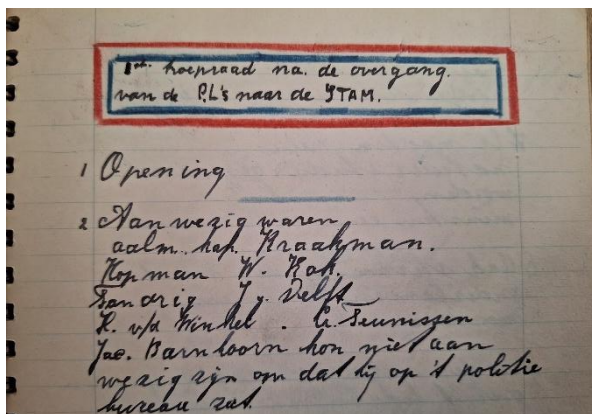 1ste hopraad na. de overgang.
van de P.L's naar de STAM.
1 Opening
2 Aanwezig waren
aalm. kap. Kraakman.
Hopman W. Kok.
Vandrig J. v. Delft
H. v/d Winkel. G. Teunissen
Jac. Barnhoorn kon niet aan
wezig zijn om dat hij op 't politie
bureau zat.